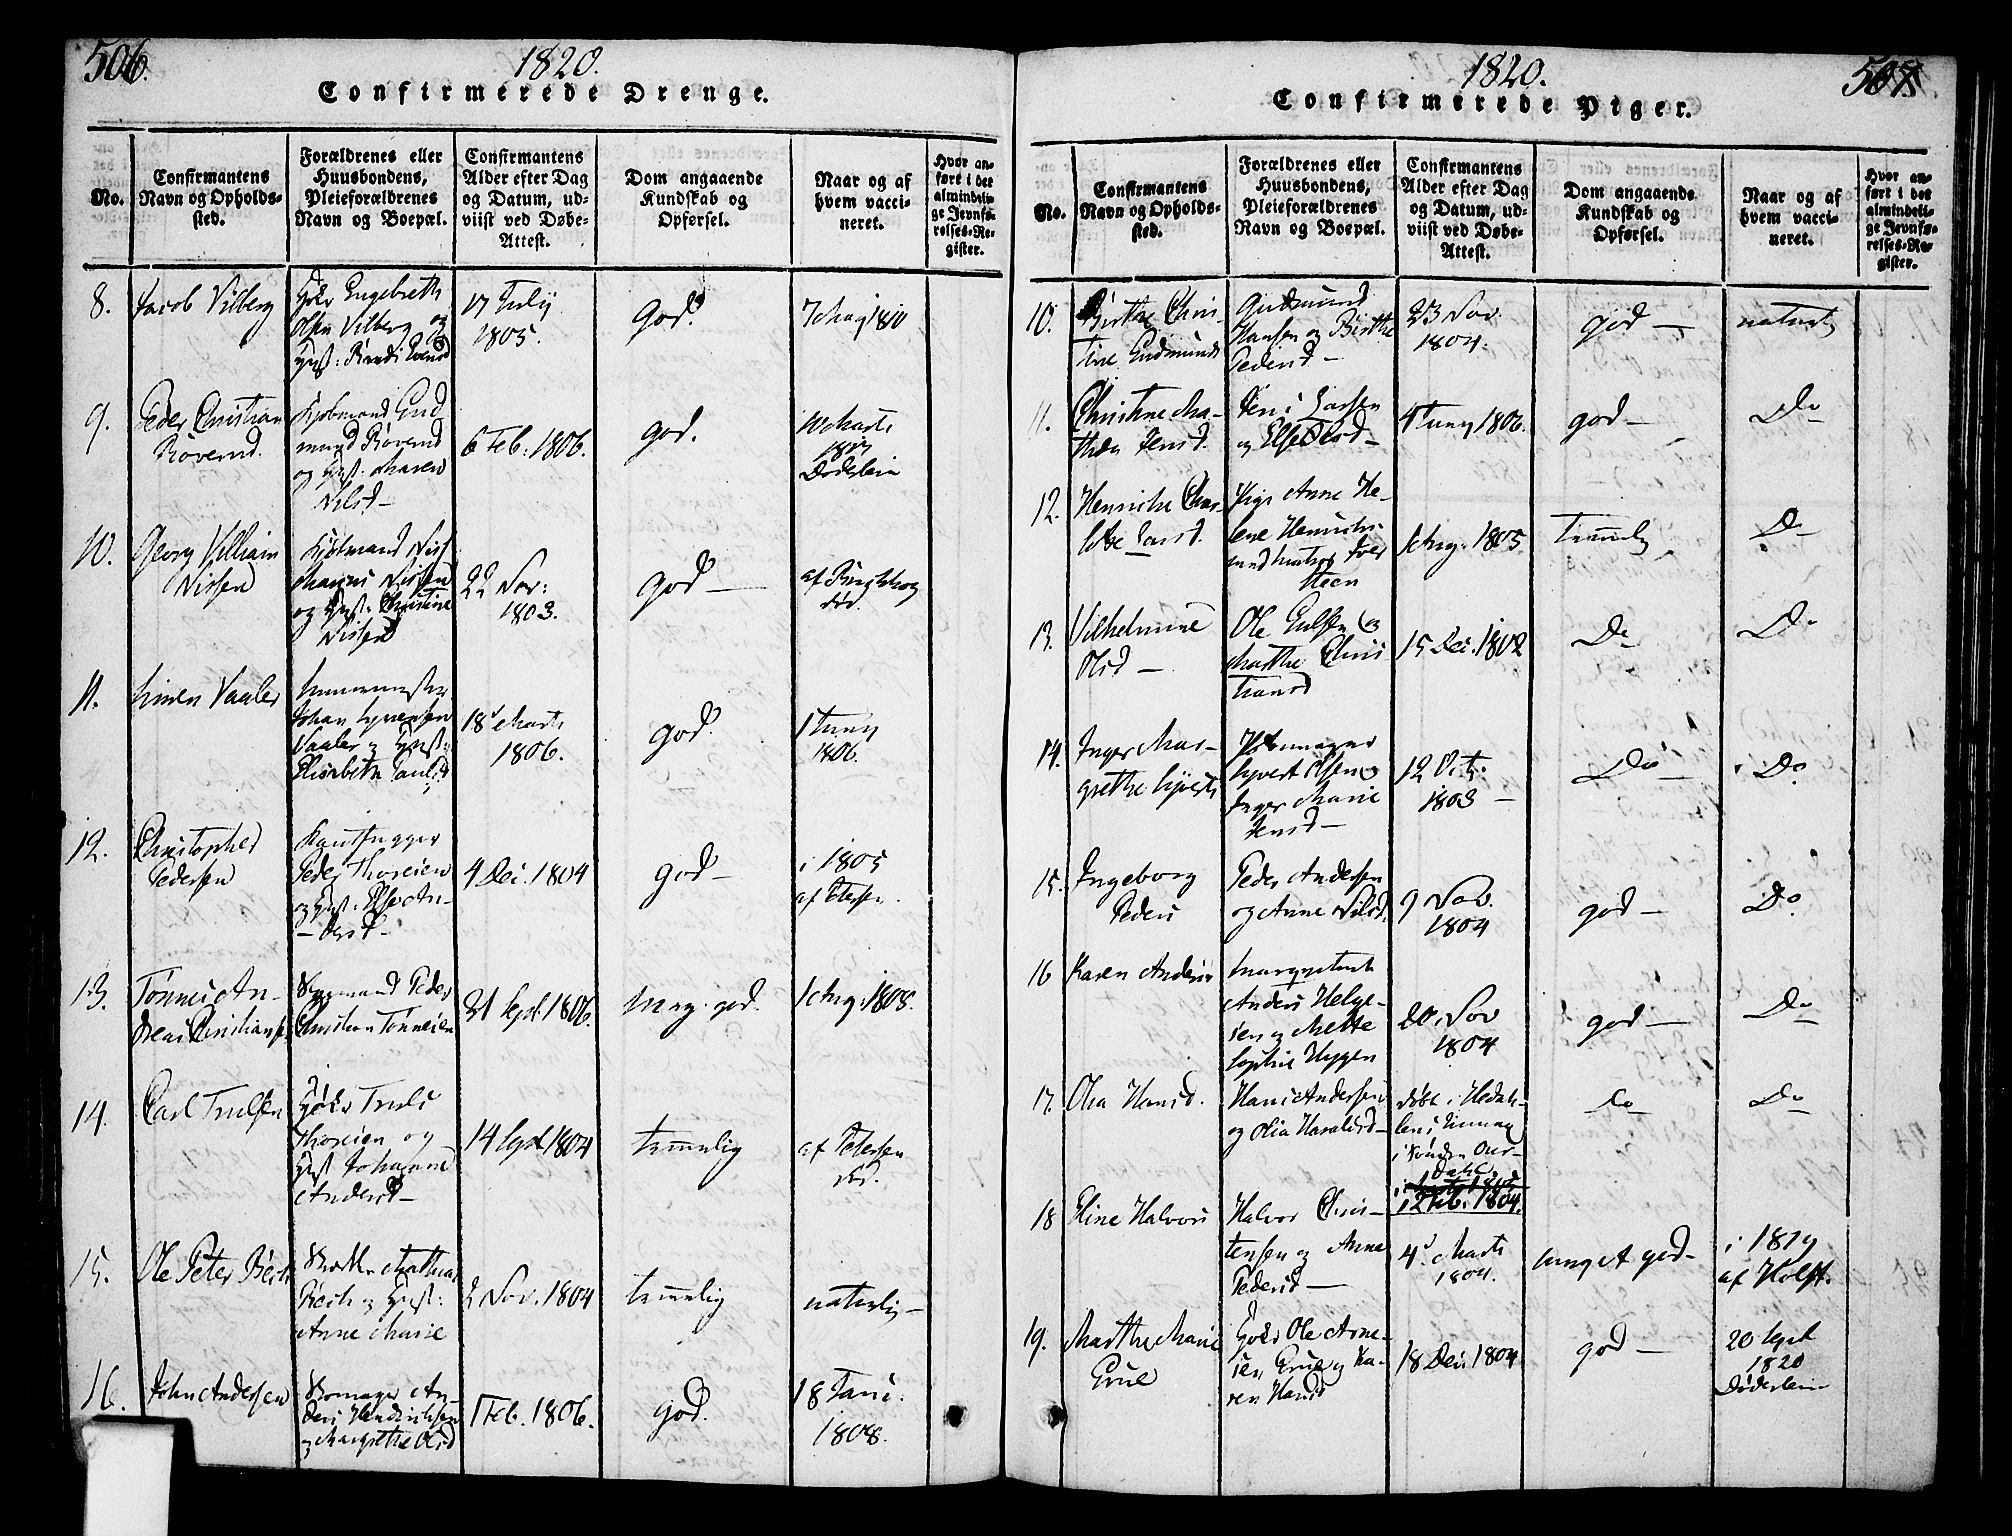 506.
1820.
Confirmerede Drenge.
No.
Confirmantens
Navn og Opholds-
sted.
Forældrenes eller
Huusbondens,
Pleieforældrenes
Navn og Boepæl.
Confirmantens
Alder efter Dag
og Datum, ud-
viist ved Døbe-
Attest.
Dom angaaende
Kundskab og
Opførsel.
Naar og af
hvem vacci-
neret.
Hvor an-
ført i det
almindeli-
ge Jevnfø-
relses-Re-
gister.
8.
Jacob Vilberg
Engebreth
Olsen Vilberg og
17 July
1805.
God.
7 May 1810
9.
Peder Christian
Røversd.
Kjøbmand Gud
mund Røversd
og Hust: Maren
Nilsd -
6 Feb: 1806.
god.
Døderlein
10.
Georg Villiam
Nissen
Kjøbmand
Nissen
og Hust: Christine
22 Nov:
1803.
god -
11.
Simen Vaaler
Johan Syversen
Vaaler og Hust:
Elisabeth Paulsd
18 Marts
1806.
god.
1 Juny
1806.
12.
Christopher
Pedersen
Peder Thoresen
og Hust: Else An-
- dersd -
4 Dec. 1804
god -
i 1805
af Petersen.
13.
Tønnes An-
dreas Christians.
Peder
Christian Tønnesen
21 Sept. 1806.
meg. god.
1 Aug. 1808.
14.
Carl Trulsen
Truls
Thoresen og
Hust Johanne
Andersd -
14 Sept 1804
temmelig
af Petersen
15.
Ole Peter Bech
Mathias
Bech og Hust:
Anne Marie
2 Nov. 1804
temmelig
naturlig -
16.
John Andersen
An-
ders Hendrichsen
og Margrethe Olsd
1 Feb. 1806.
god.
18 Jani.
1808.
507.
1820.
Confirmerede Piger.
No.
Confirmantens
Navn og Opholds-
sted.
Forældrenes eller
Huusbondens,
Pleieforældrenes
Navn og Boepæl.
Confirmantens
Alder efter Dag
og Datum, ud-
viist ved Døbe-
Attest.
Dom angaaende
Kundskab og
Opførsel.
Naar og af
hvem vacci-
neret.
Hvor an-
ført i det
almindeli-
ge Jevnfø-
relses-Re-
gister.
10.
Birthe Chris-
tine Gudmunds
Gudmund
Hansen og Birthe
Pedersd -
23 Nov.
1804.
god -
naturlig
11.
Christine Ma-
thea Jensd.
Jens Larsen
og Else Olsd -
4 Juny 1806.
god -
Do
12.
Henriche Char-
lotte Larsd.
Pige Anne He-
lene Henrichs
1 Aug. 1805
Temmelig
Do
13.
Vilhelmine
Olsd -
Ole Gulsen og
Marthe Chris
tiansd
15 Dec. 1802
Do
Do
14.
Inger Mar-
grethe Syverts
Syvert Olsen og
Inger Marie
Jensd -
12 Octr.
1803 -
Do
Do
15.
Ingeborg
Peders
Peder Andersen
og Anne Nilsd.
9 Nov.
1804
god -
Do
16
Karen Anders
Anders Helge-
sen og Mette
Sophie Hygen
20. Nov
1804
god -
Do
17.
Olia Hansd.
Hans Andersen
og Olia Haraldsd -
døbt i Hedah-
i Søndre Our-
dahl
12 Feb. 1804.
Do
Do
18
Eline Halvors
Halvor Chris-
tensen og Anne
Pedersd -
4 Marts
1804.
meget god -
i 1819
af Holst.
19.
Marthe Marie
Grue
Ole Arne-
sen Grue og Ka-
ren Hansd
18 Dec. 1804
god -
20 Sept
1820
Døderlein